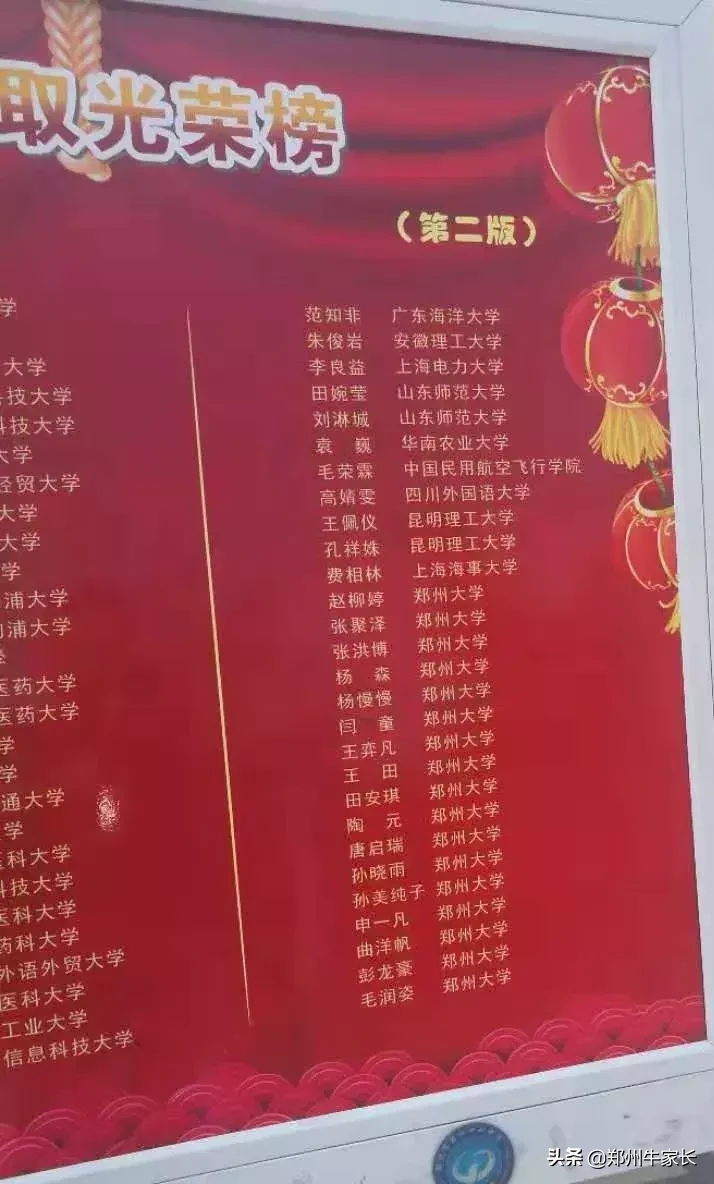 取光荣榜
（第二版）
学
大学
科技大学
科技大学
大学
经贸大学
大学
大学
学
浦大学
浦大学
学
医药大学
医药大学
学
学
通大学
学
医科大学
科技大学
医科大学
药科大学
外语外贸大学
医科大学
工业大学
信息科技大学
范知非 广东海洋大学
朱俊岩 安徽理工大学
李良益 上海电力大学
田婉莹 山东师范大学
刘淋城 山东师范大学
袁 巍 华南农业大学
毛荣霖 中国民用航空飞行学院
高婧雯 四川外国语大学
王佩仪 昆明理工大学
孔祥姝 昆明理工大学
费相林 上海海事大学
赵柳婷 郑州大学
张聚泽 郑州大学
张洪博 郑州大学
杨 森 郑州大学
杨慢慢 郑州大学
闫 童 郑州大学
王弈凡 郑州大学
王 田 郑州大学
田安琪 郑州大学
陶 元 郑州大学
唐启瑞 郑州大学
孙晓雨 郑州大学
孙美纯子 郑州大学
申一凡 郑州大学
曲洋帆 郑州大学
彭龙豪 郑州大学
毛润姿 郑州大学
头条 @郑州牛家长